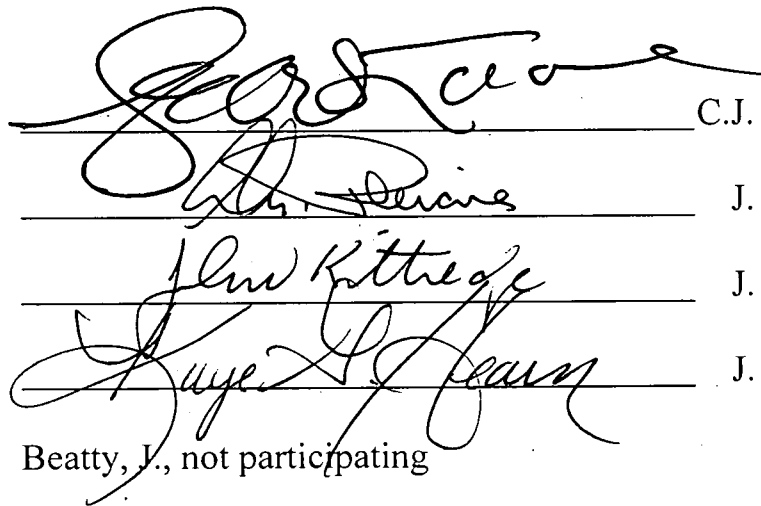 C.J.
J.
John Kittredge J.
Kaye G. Hearn J.
Beatty, J., not participating